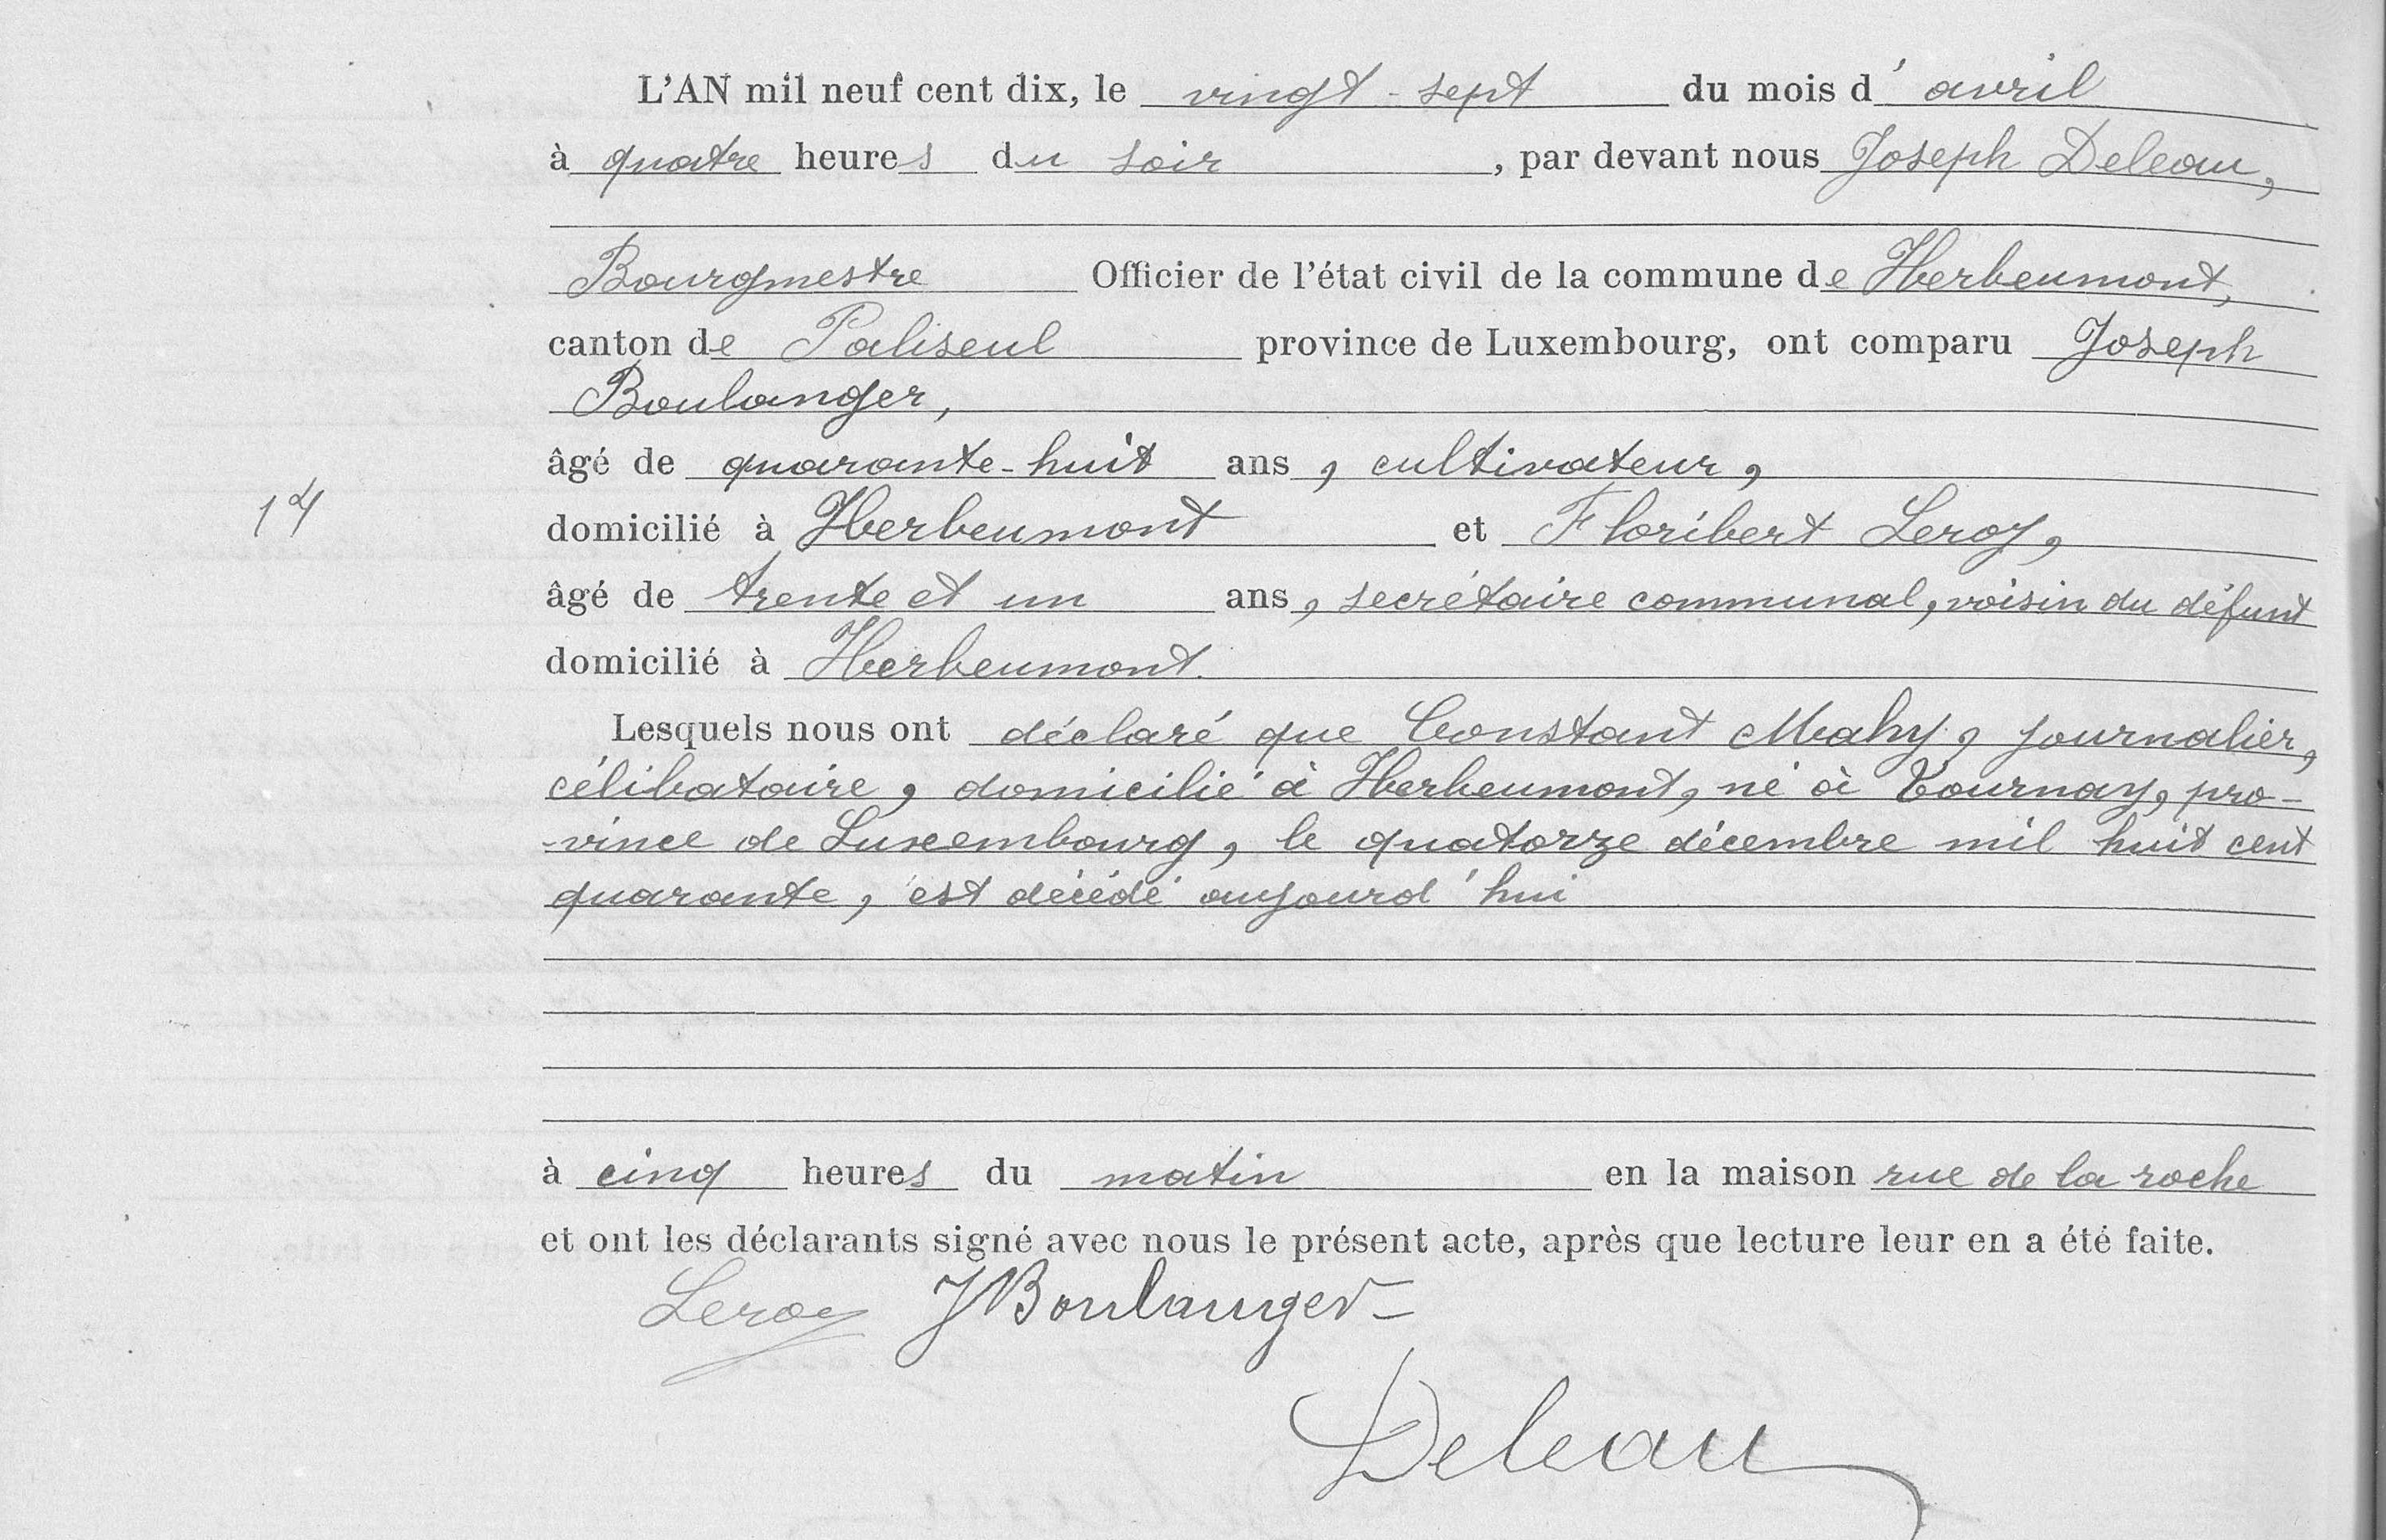 L'AN mil neuf cent dix, le vingt-sept du mois d'avril
à quatre heures du soir, par devant nous Joseph Deleau,
Bourgmestre Officier de l'état civil de la commune de Herbeumont,
canton de Paliseul province de Luxembourg, ont comparu Joseph
Boulanger,
âgé de quarante-huit ans, cultivateur,
14
domicilié à Herbeumont et Floribert Leroy,
âgé de trente et un ans, secrétaire communal, voisin du défunt
domicilié à Herbeumont.
Lesquels nous ont déclaré que Constant Mahy, journalier,
célibataire, domicilié à Herbeumont, né à Tournay, pro-
-vince de Luxembourg, le quatorze décembre mil huit cent
quarante, est décédé aujourd'hui
à cinq heures du matin en la maison rue de la roche
et ont les déclarants signé avec nous le présent acte, après que lecture leur en a été faite.
Leroy JBoulanger
Deleau